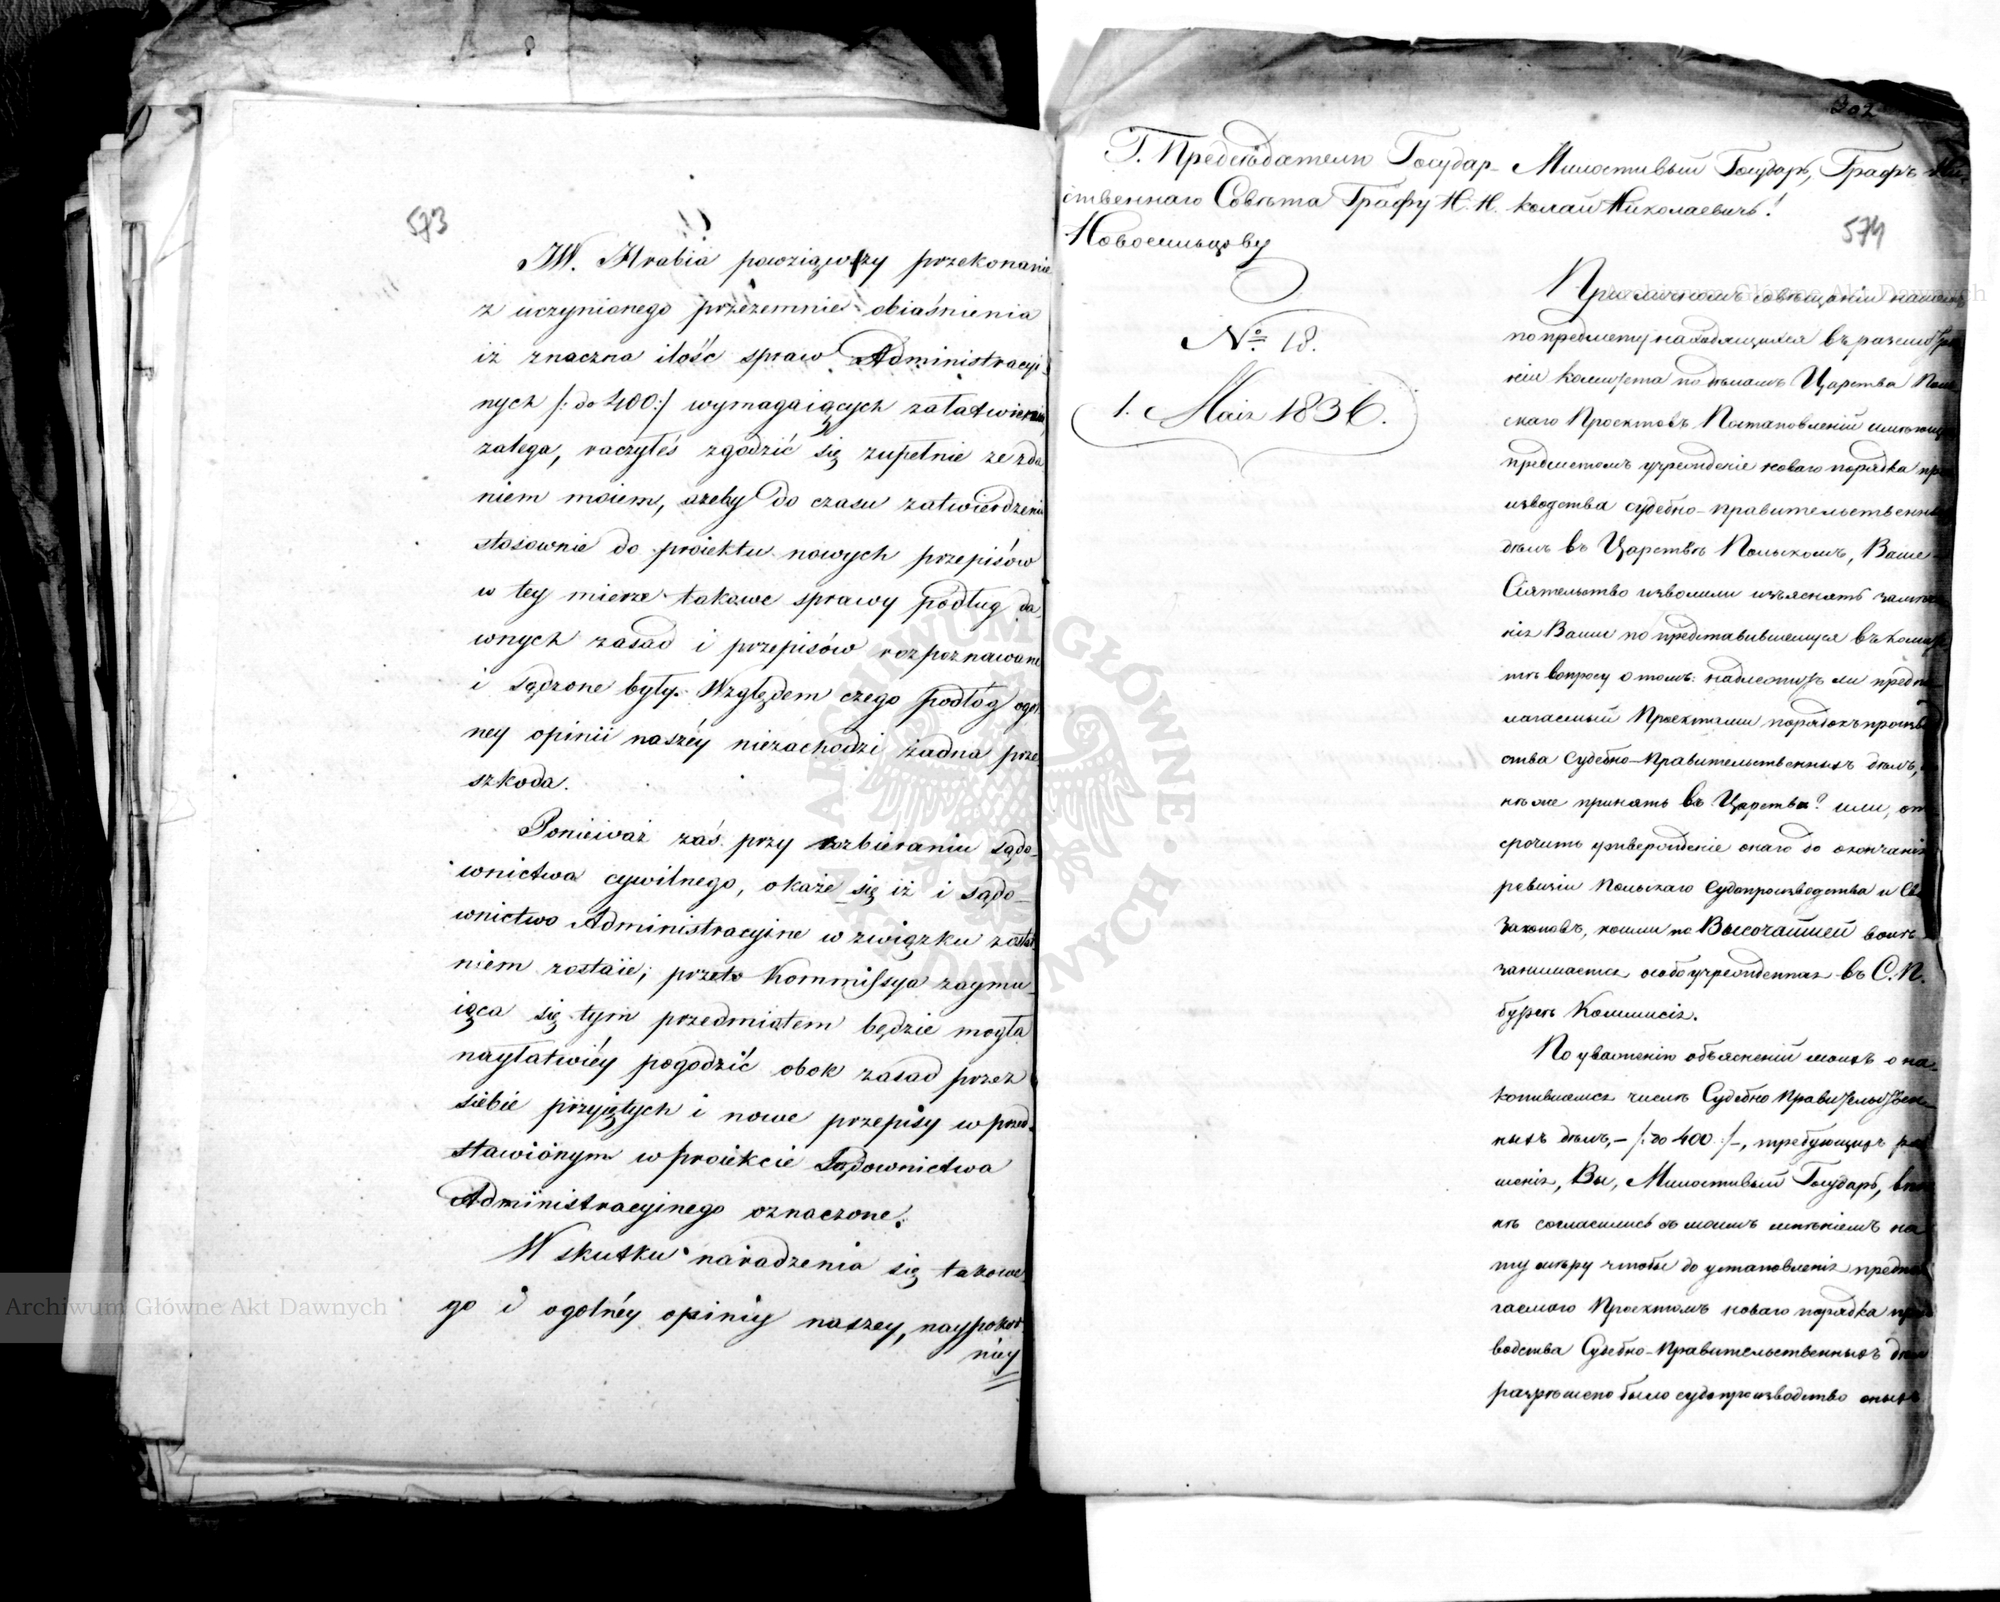 573
JW. Hrabia powziąwszy przekonanie
z uczynionego przezemnie obiaśnienia
iż znaczna ilość spraw Administracyi-
nych /: do 400:/ wymagaiących załatwienia,
zalega, raczyłeś zgodzić się zupełnie ze zda
niem moiem, ażeby do czasu zatwierdzenia
stosownie do proiektu nowych przepisów
w tey mierze takowe sprawy podług da-
wnych zasad i przepisów rozpoznawane
i sądzone były. Względem czego podłóg ogól
ney opinii naszéy niezachodzi żadna prze-
szkoda.
Ponieważ zaś przy rozbieraniu sądo-
wnictwa cywilnego, okaże się iż i sądo-
wnictwo Administracyine w związku z
niem zostaie; przeto Kommissya zaymu-
iąca się tym przedmiotem będzie mogła
nayłatwiéy pogodzić obok zasad przez
siebie przyiętych i nowe przepisy w przed-
stawionym w proiekcie Sądownictwa
Administracyinego oznaczone.
W skutku naradzenia się takowe
go i ogolnéy opinii naszey, naypokor-
niey
302
Г. Председателю Государ-
ственнаго Совѣта Графу Н. Н.
Новосильцову
№ 18.
1. Маія 1836.
Милостивый Государь, Графъ Ни-
колай Николаевичъ!
574
При личномъ совѣщаніи нашемъ
по предмету находящихся въ разсмотрѣ
ніи Комитета по дѣламъ Царства Поль
скаго Проектовъ Постановленій имѣющихъ
предметомъ учрежденіе новаго порядка про
изводства судебно-правительственныхъ
дѣлъ въ Царствѣ Польскомъ, Ваше
Сіятельство изволили изъяснять замѣча
нія Ваши по представившемуся въ Коми
тѣ вопросу о томъ: надлежитъ ли предпо-
лагаемый Проектами порядокъ производ
ства Судебно-Правительственныхъ дѣлъ,
нѣ же принять въ Царствѣ? или, от
срочить утвержденіе онаго до окончанія
ревизіи Польскаго Судопроизводства и Св.
Законовъ, коими по Высочайшей волѣ
занимается особо учрежденная въ С. П.
бургѣ Коммисія.
По уваженію объясненій моихъ о на-
копившемся числѣ Судебно Правительствен-
ныхъ дѣлъ, - /: до 400 :/ -, требующихъ рѣ
шенія, Вы, Милостивый Государь, впол
нѣ согласились съ моимъ мнѣніемъ на
ту мѣру чтобы до установленія предпола
гаемаго Проектомъ новаго порядка произ
водства Судебно-Правительственныхъ дѣлъ
разрѣшено было судопроизводство оныхъ
Archiwum Główne Akt Dawnych
Archiwum Główne Akt Dawnych
ARCHIWUM GŁÓWNE AKT DAWNYCH